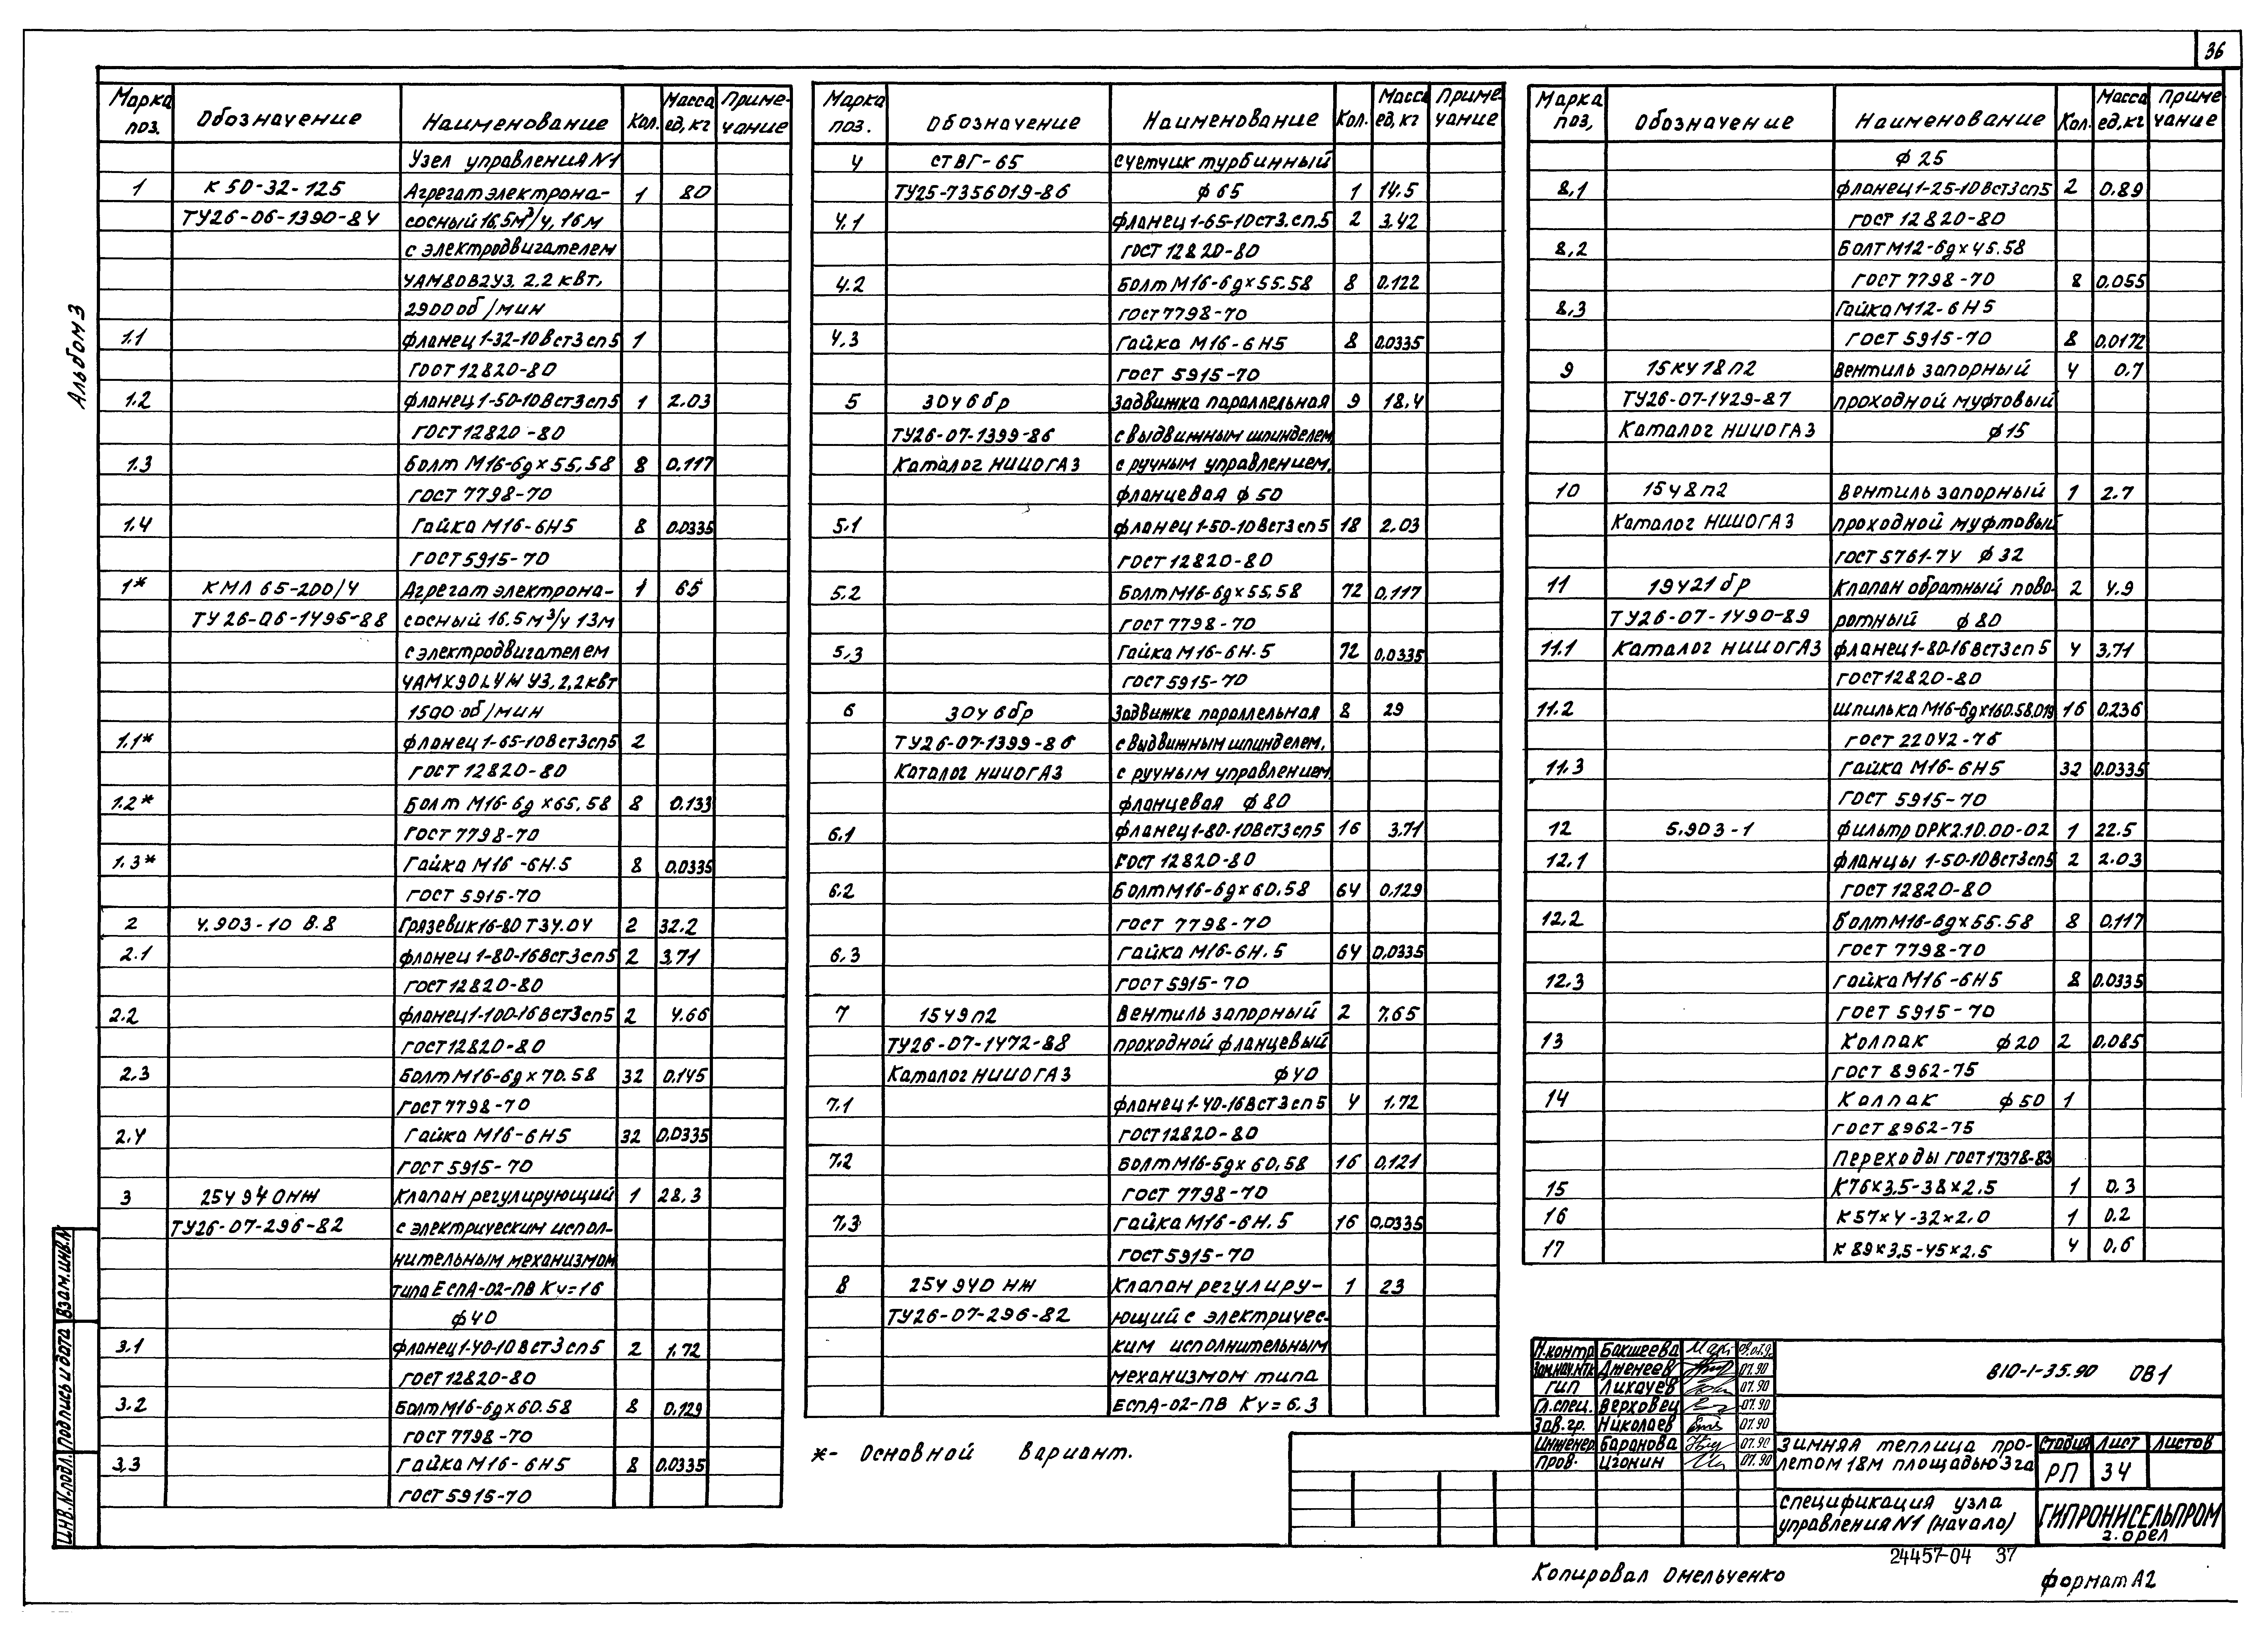 36
Альбом 3
Марка поз. Обозначение Наименование Кол. Масса ед, кг Приме-чание
Узел управления N1
1 К 50-32-125 Агрегат электрона- 1 80
ТУ26-06-1390-84 сосный 16,5м³/ч, 16м
с электродвигателем
4АМ80В2У3, 2.2 квт,
2900 об/мин
1.1 фланец 1-32-10Вст3сп5 1
ГОСТ 12820-80
1.2 фланец 1-50-10Вст3сп5 1 2.03
ГОСТ 12820-80
1.3 Болт М16-6g×55,58 8 0,117
ГОСТ 7798-70
1.4 Гайка М16-6Н5 8 0,0335
ГОСТ 5915-70
1* КМЛ 65-200/4 Агрегат электрона- 1 65
ТУ 26-06-1495-88 сосный 16.5м³/ч 13м
с электродвигателем
4АМХ90L4М У3, 2,2 квт
1500 об/мин
1.1* фланец 1-65-10Вст3сп5 2
ГОСТ 12820-80
1.2* Болт М16-6g×65,58 8 0,133
ГОСТ 7798-70
1.3* Гайка М16-6Н.5 8 0,0335
ГОСТ 5915-70
2 4.903-10 В.8 Грязевик 16-80 Т34.04 2 32.2
2.1 фланец 1-80-16Вст3сп5 2 3,71
ГОСТ 12820-80
2.2 фланец 1-100-16Вст3сп5 2 4.66
ГОСТ 12820-80
2.3 Болт М16-6g×70.58 32 0,145
ГОСТ 7798-70
2.4 Гайка М16-6Н5 32 0,0335
ГОСТ 5915-70
3 25ч940нж Клапан регулирующий 1 28.3
ТУ26-07-296-82 с электрическим испол-
нительным механизмом
типа ЕСПА-02-ПВ Кv=16
ф40
3.1 фланец 1-40-10Вст3сп5 2 1.72
ГОСТ 12820-80
3.2 Болт М16-6g×60.58 8 0,129
ГОСТ 7798-70
3.3 Гайка М16-6Н5 8 0,0335
ГОСТ 5915-70
Марка поз. Обозначение Наименование Кол. Масса ед, кг Приме-чание
4 СТВГ-65 счетчик турбинный
ТУ25-7356019-86 ф65 1 14.5
4.1 фланец 1-65-10ст3.сп.5 2 3.42
ГОСТ 12820-80
4.2 Болт М16-6g×55.58 8 0,122
ГОСТ 7798-70
4.3 Гайка М16-6Н5 8 0,0335
ГОСТ 5915-70
5 30ч6бр Задвижка параллельная 9 18,4
ТУ26-07-1399-86 с выдвижным шпинделем
Каталог НИИОГАЗ с ручным управлением,
фланцевая ф50
5.1 фланец 1-50-10Вст3сп5 18 2.03
ГОСТ 12820-80
5.2 Болт М16-6g×55,58 72 0,117
ГОСТ 7798-70
5.3 Гайка М16-6Н.5 72 0,0335
ГОСТ 5915-70
6 30ч6бр Задвижка параллельная 8 29
ТУ26-07-1399-86 с выдвижным шпинделем,
Каталог НИИОГАЗ с ручным управлением
фланцевая ф80
6.1 фланец 1-80-10Вст3сп5 16 3.71
ГОСТ 12820-80
6.2 Болт М16-6g×60.58 64 0,129
ГОСТ 7798-70
6.3 Гайка М16-6Н.5 64 0,0335
ГОСТ 5915-70
7 15ч9п2 Вентиль запорный 2 7,65
ТУ26-07-1472-88 проходной фланцевый
Каталог НИИОГАЗ ф40
7.1 фланец 1-40-16Вст3сп5 4 1.72
ГОСТ 12820-80
7.2 Болт М16-5g×60,58 16 0,121
ГОСТ 7798-70
7.3 Гайка М16-6Н.5 16 0,0335
ГОСТ 5915-70
8 25ч940нж Клапан регулиру- 1 23
ТУ26-07-296-82 ющий с электричес-
ким исполнительным
механизмом типа
ЕСПА-02-ПВ Кv=6.3
Марка поз, Обозначение Наименование Кол. Масса ед, кг Приме-чание
ф25
8,1 фланец 1-25-10Вст3сп5 2 0.89
ГОСТ 12820-80
8,2 Болт М12-6g×45.58
ГОСТ 7798-70 8 0,055
8,3 Гайка М12-6Н5
ГОСТ 5915-70 8 0,0172
9 15КЧ18п2 Вентиль запорный 4 0.7
ТУ26-07-1429-87 проходной муфтовый
Каталог НИИОГАЗ ф15
10 15ч8п2 Вентиль запорный 1 2.7
Каталог НИИОГАЗ проходной муфтовый
ГОСТ 5761-74 ф32
11 19ч21бр Клапан обратный пово- 2 4.9
ТУ26-07-1490-89 ротный ф80
11.1 Каталог НИИОГАЗ фланец 1-80-16Вст3сп5 4 3,71
ГОСТ 12820-80
11.2 Шпилька М16-6g×160.58.019 16 0.236
ГОСТ 22042-76
11.3 Гайка М16-6Н5 32 0.0335
ГОСТ 5915-70
12 5.903-1 фильтр ОРК2.10.00-02 1 22.5
12.1 фланцы 1-50-10Вст3сп5 2 2.03
ГОСТ 12820-80
12.2 Болт М16-6g×55.58 8 0,117
ГОСТ 7798-70
12.3 Гайка М16-6Н5 8 0,0335
ГОСТ 5915-70
13 Колпак ф20 2 0,085
ГОСТ 8962-75
14 Колпак ф50 1
ГОСТ 8962-75
Переходы ГОСТ 17378-83
15 К76×3,5-38×2.5 1 0.3
16 К57×4-32×2.0 1 0.2
17 К89×3,5-45×2.5 4 0,6
*- Основной вариант.
Н.контр Бакшеева
Зам.нач.НТК Дтенеев 07.90
ГИП Лихачев 07.90
Гл.спец. Верховец 07.90
Зав.гр. Николаев 07.90
Инженер Баранова 07.90
Пров. Игонин 07.90
810-1-35.90 ОВ1
Зимняя теплица про-
летом 18м площадью 3га
Стадия Лист Листов
РП 34
Спецификация узла
управления N1 (Начало)
ГИПРОНИСЕЛЬПРОМ
г. Орел
24457-04 37
Копировал Омельченко
Формат А2
Инв. N подл. Подпись и дата Взам.инв.N